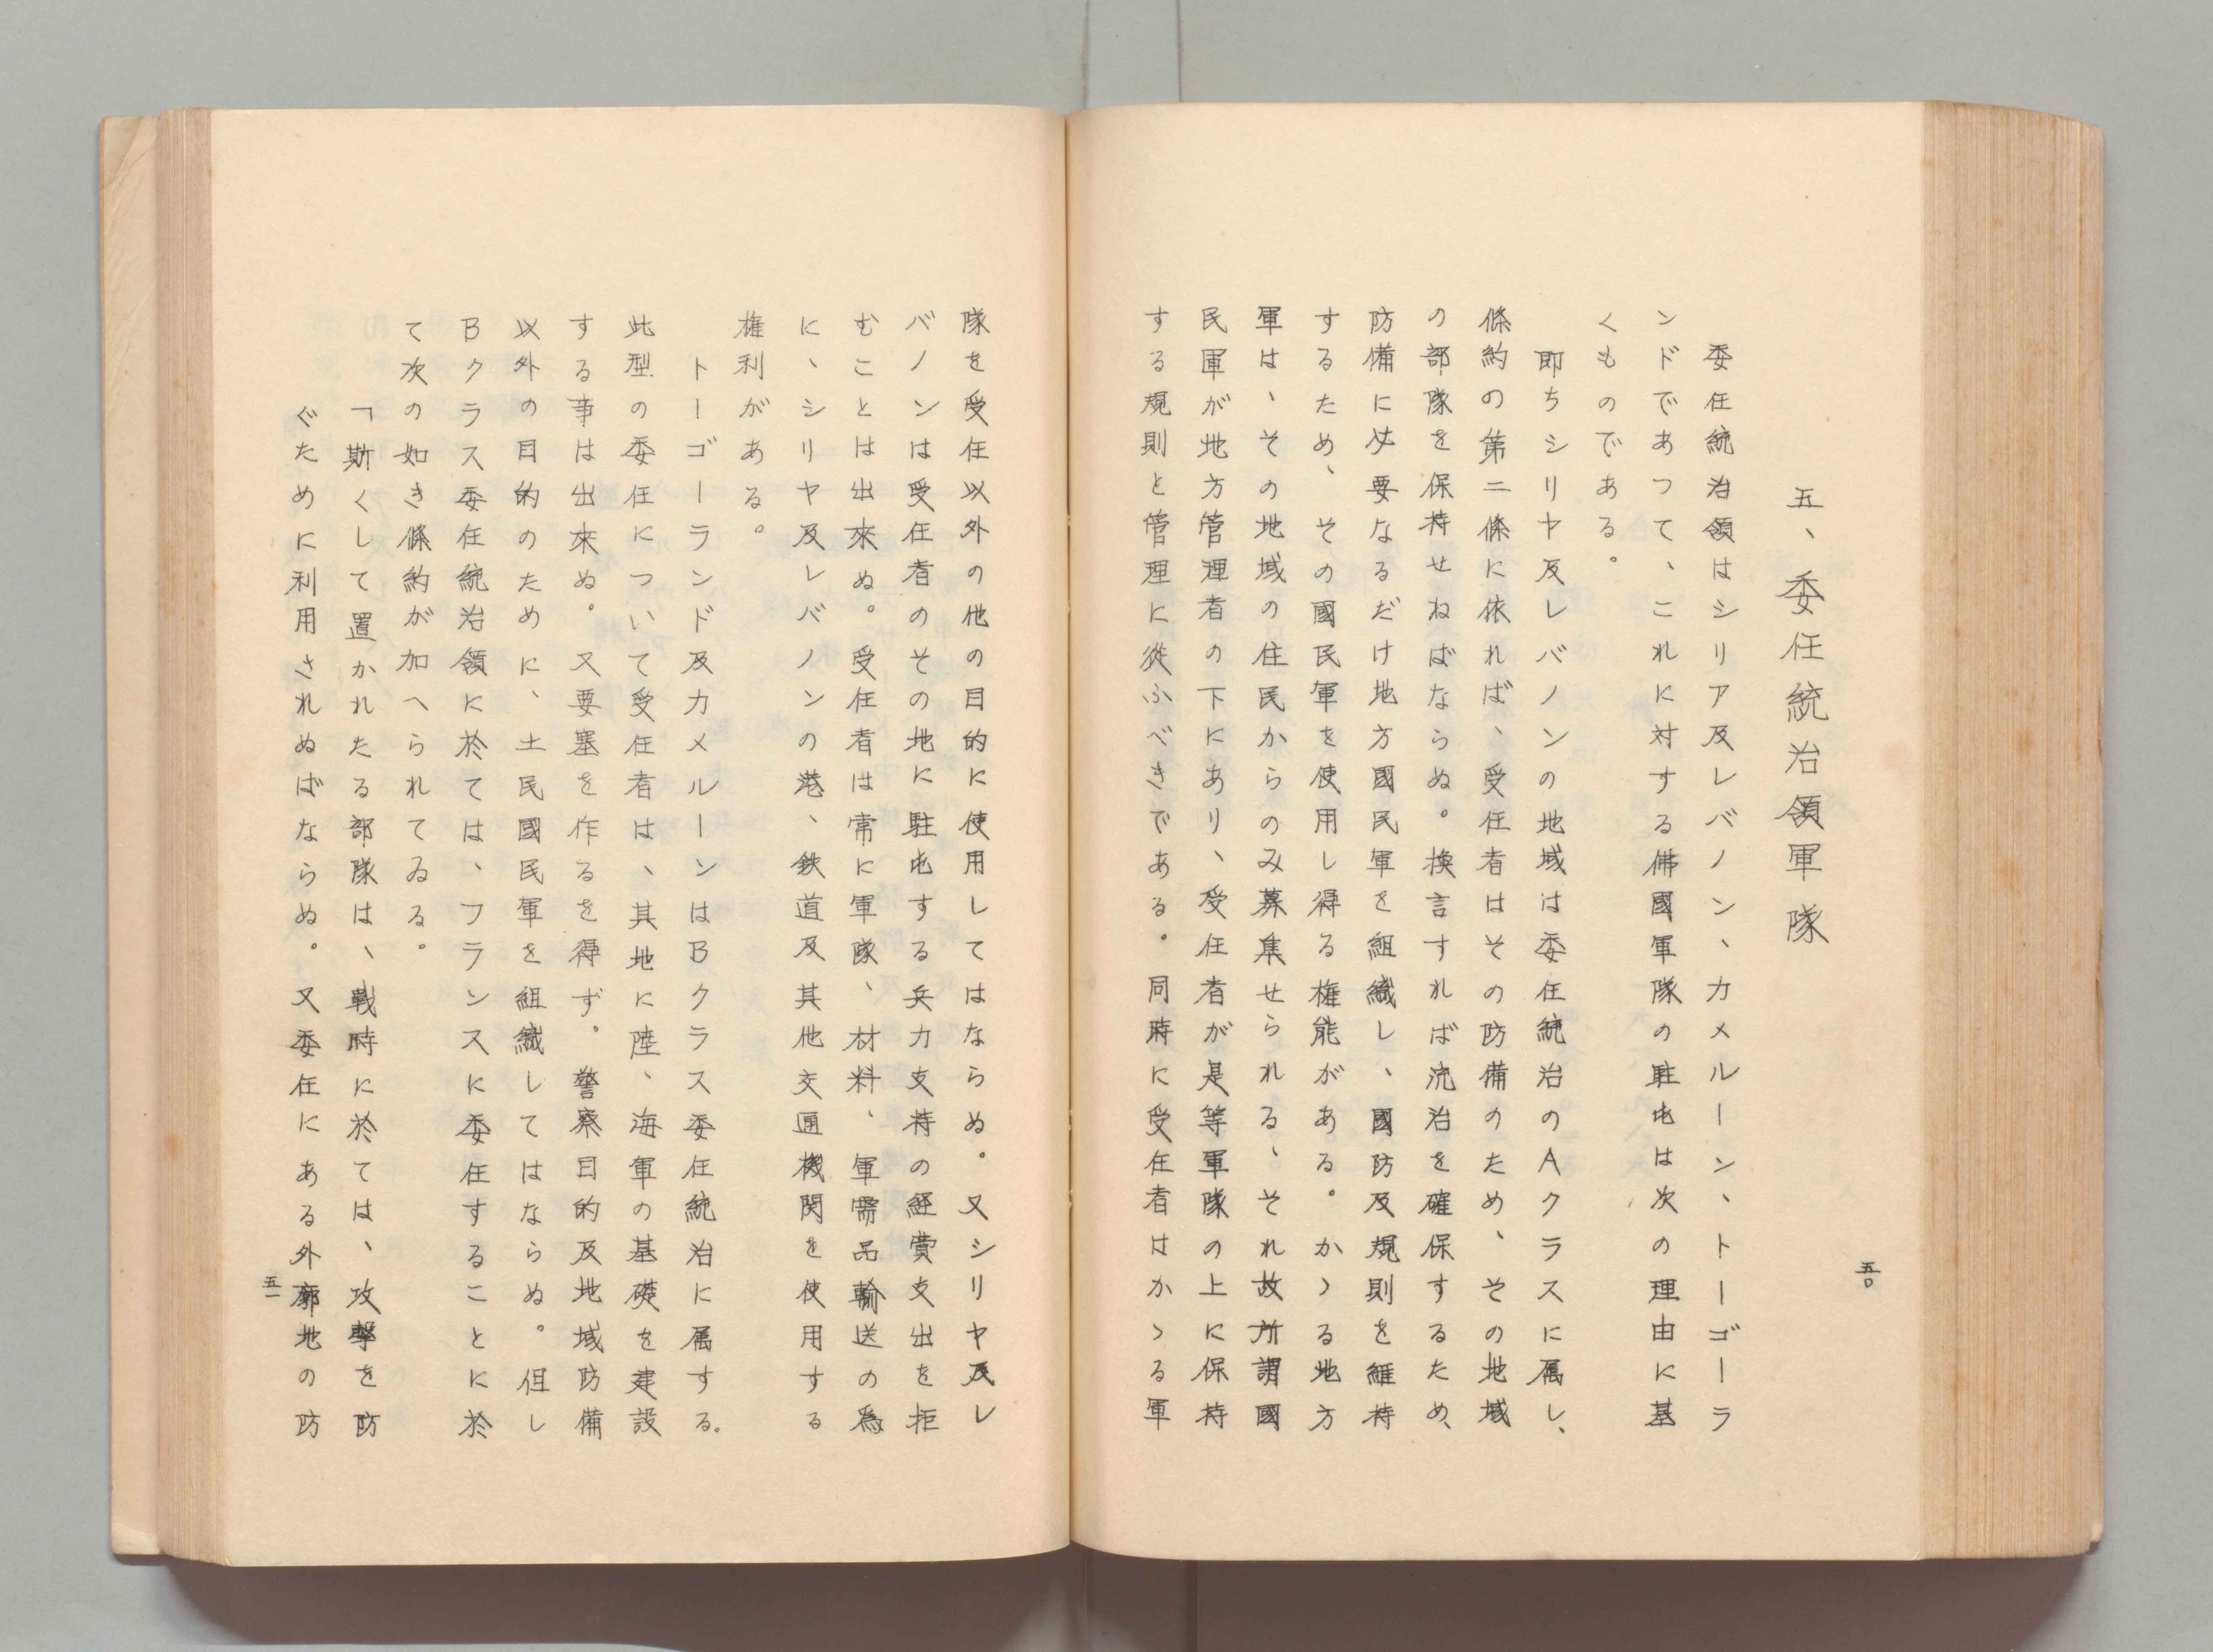 五、委任統治領軍隊
委任統治領はシリア及レバノン、カメルーン、トーゴーラ
ンドであつて、これに対する佛國軍隊の駐屯は次の理由に基
くものである。
即ちシリヤ及レバノンの地域は委任統治のAクラスに属し、
條約の第二條に依れば、受任者はその防備のため、その地域
の部隊を保持せねばならぬ。換言すれば流治を確保するため、
防備に必要なるだけ地方國民軍を組織し、國防及規則を維持
するため、その國民軍を使用し得る権能がある。かゝる地方
軍は、その地域の住民からのみ募集せられる、それ故所謂國
民軍が地方管理者の下にあり、受任者が是等軍隊の上に保持
する規則と管理に從ふべきである。同時に受任者はかゝる軍
五〇
隊を受任以外の他の目的に使用してはならぬ。又シリヤ及レ
バノンは受任者のその地に駐屯する兵力支持の経費支出を拒
むことは出來ぬ。受任者は常に軍隊、材料、軍需品輸送の為
に、シリヤ及レバノンの港、鉄道及其他交通機関を使用する
権利がある。
トーゴーランド及カメルーンはBクラス委任統治に属する。
此型の委任について受任者は、其地に陸、海軍の基礎を建設
する事は出來ぬ。又要塞を作るを得ず。警察目的及地域防備
以外の目的のために、土民國民軍を組織してはならぬ。但し
Bクラス委任統治領に於ては、フランスに委任することに於
て次の如き條約が加へられてゐる。
「斯くして置かれたる部隊は、戰時に於ては、攻撃を防
ぐために利用されぬばならぬ。又委任にある外廓地の防
五一